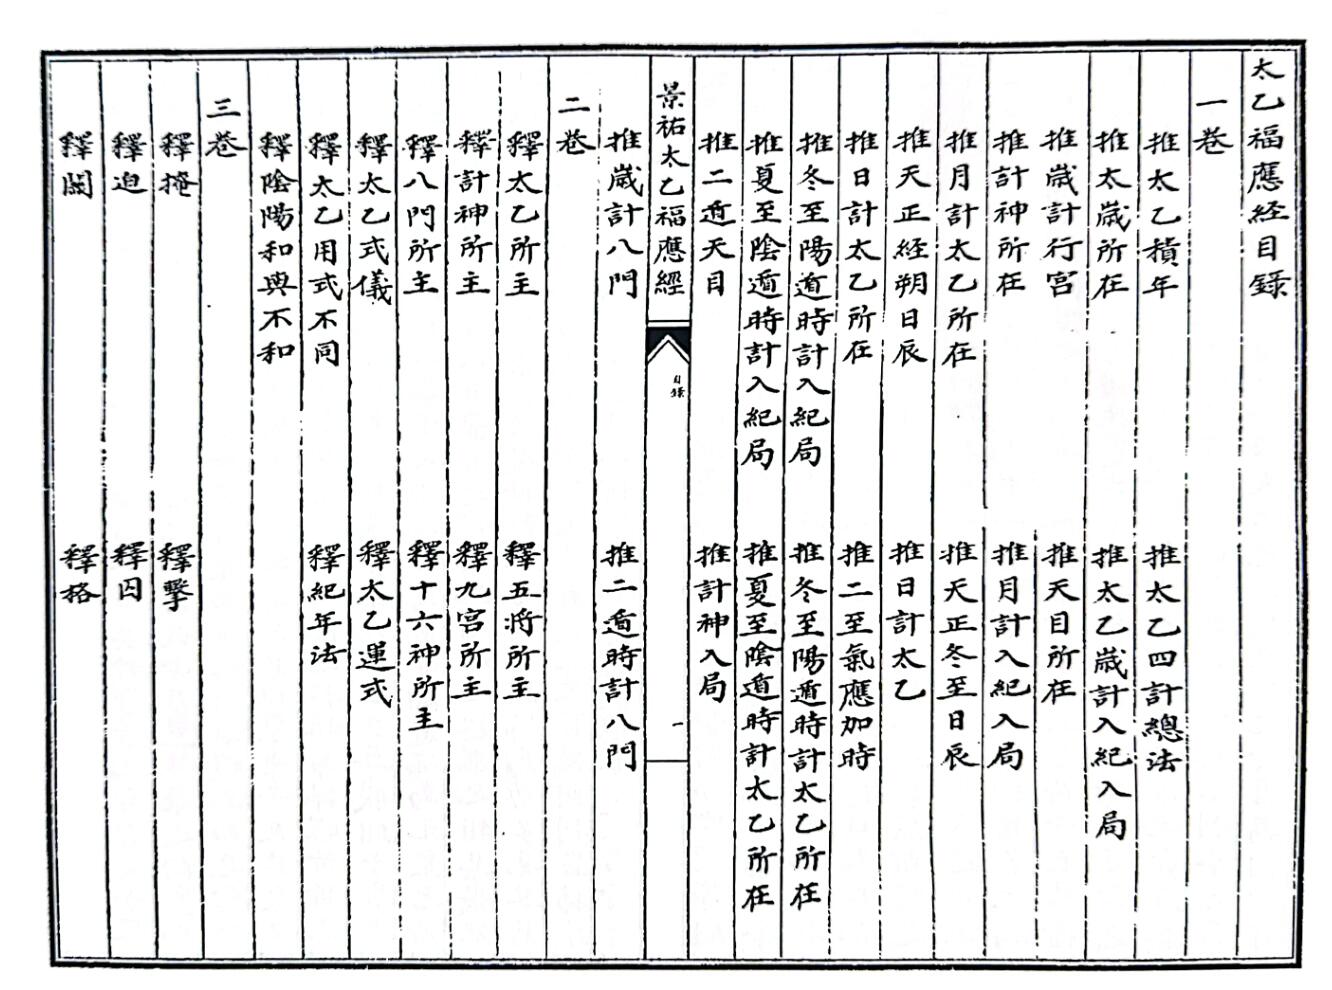 太乙福應経目録
一卷
推太乙積年 推太乙四計總法
推太歳所在 推太乙歳計入紀入局
推歳計行宫 推天目所在
推計神所在 推月計入紀入局
推月計太乙所在 推天正冬至日辰
推天正経朔日辰 推日計太乙
推日計太乙所在 推二至氣應加時
推冬至陽遁時計入紀局 推冬至陽遁時計太乙所在
推夏至陰遁時計入紀局 推夏至陰遁時計太乙所在
推二遁天目 推計神入局
景祐太乙福應經 目錄 一
推歳計八門 推二遁時計八門
二卷
釋太乙所主 釋五将所主
釋計神所主 釋九宫所主
釋八門所主 釋十六神所主
釋太乙式儀 釋太乙運式
釋太乙用式不同 釋紀年法
釋陰陽和與不和
三卷
釋掩 釋擊
釋迫 釋囚
釋關 釋格